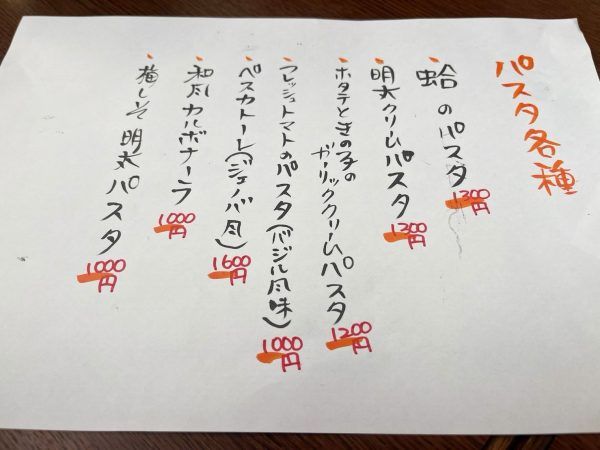 パスタ各種
・蛤のパスタ
1300円
・明太クリームパスタ
1300円
・ホタテときの子の
ガーリッククリームパスタ
1200円
・フレッシュトマトのパスタ(バジル風味)
1000円
・ペスカトーレ(ジェノバ風)
1600円
・和風カルボナーラ
1000円
・梅しそ明太パスタ
1000円